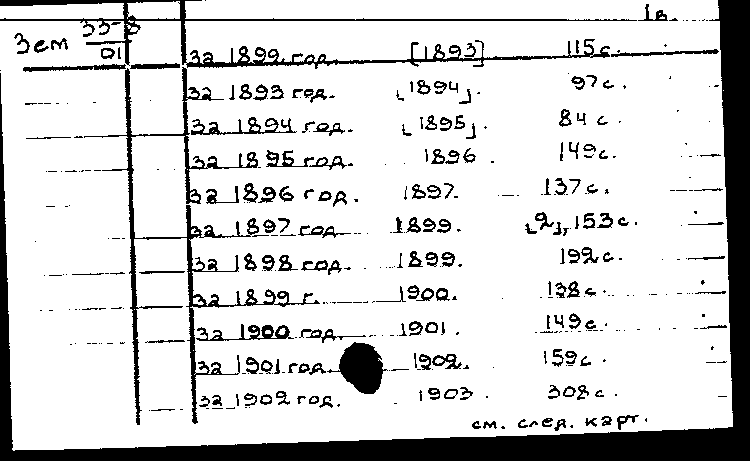 1в.
Зем 33-8
01
за 1899 год. [1893] 115 с.
за 1893 год. [1894]. 97 с.
за 1894 год. [1895]. 84 с.
за 1895 год. 1896. 149 с.
за 1896 год. 1897. 137 с.
за 1897 год 1899. [2], 153 с.
за 1898 год. 1899. 192 с.
за 1899 г. 1900. 138 с.
за 1900 год. 1901. 149 с.
за 1901 год. 1902. 159 с.
за 1902 год. 1903. 308 с.
см. след. карт.